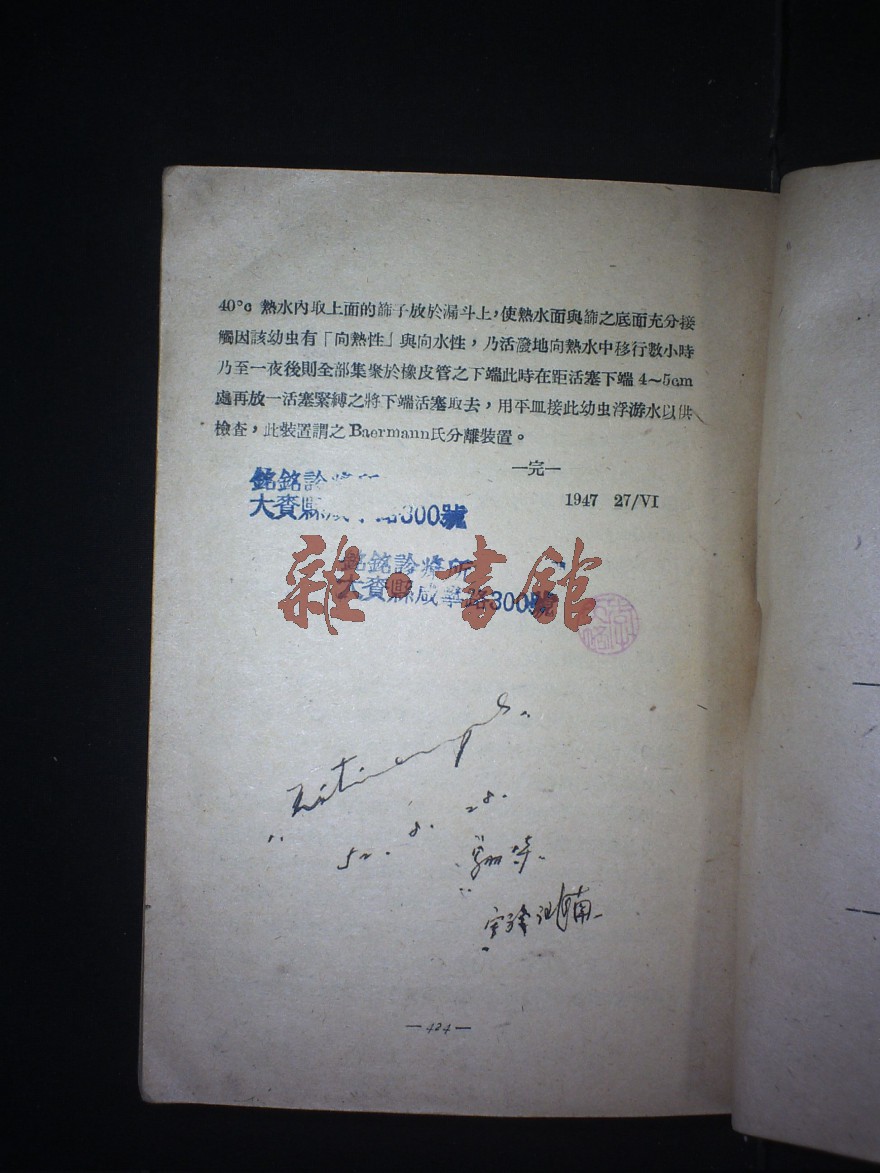 40°c 熱水內取上面的篩子放於漏斗上，使熱水面與篩之底面充分接
觸因該幼虫有「向熱性」與向水性，乃活潑地向熱水中移行數小時
乃至一夜後則全部集聚於橡皮管之下端此時在距活塞下端4～5cm
處再放一活塞緊縛之將下端活塞取去，用平皿接此幼虫浮游水以供
檢查，此裝置謂之Baermann氏分離裝置。
—完—
1947 27/VI
銘銘診療所
大賚縣咸寧路300號
銘銘診療所
大賚縣咸寧路300號
雜·書館
52. 8. 28.
—424—